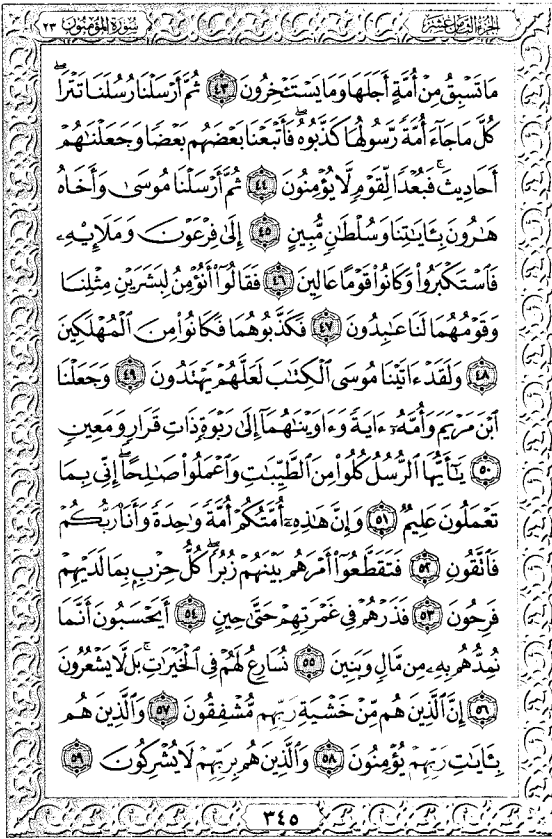 الجزء الثامن عشر
سورة المؤمنون ٢٣
مَا تَسْبِقُ مِنْ أُمَّةٍ أَجَلَهَا وَمَا يَسْتَـْٔخِرُونَ ٤٣ ثُمَّ أَرْسَلْنَا رُسُلَنَا تَتْرَاۖ
كُلَّ مَا جَآءَ أُمَّةً رَّسُولُهَا كَذَّبُوهُۖ فَأَتْبَعْنَا بَعْضَهُم بَعْضًا وَجَعَلْنَـٰهُمْ
أَحَادِيثَۚ فَبُعْدًا لِّقَوْمٍ لَّا يُؤْمِنُونَ ٤٤ ثُمَّ أَرْسَلْنَا مُوسَىٰ وَأَخَاهُ
هَـٰرُونَ بِـَٔايَـٰتِنَا وَسُلْطَـٰنٍ مُّبِينٍ ٤٥ إِلَىٰ فِرْعَوْنَ وَمَلَإِي۟هِۦ
فَٱسْتَكْبَرُوا۟ وَكَانُوا۟ قَوْمًا عَالِينَ ٤٦ فَقَالُوٓا۟ أَنُؤْمِنُ لِبَشَرَيْنِ مِثْلِنَا
وَقَوْمُهُمَا لَنَا عَـٰبِدُونَ ٤٧ فَكَذَّبُوهُمَا فَكَانُوا۟ مِنَ ٱلْمُهْلَكِينَ
٤٨ وَلَقَدْ ءَاتَيْنَا مُوسَى ٱلْكِتَـٰبَ لَعَلَّهُمْ يَهْتَدُونَ ٤٩ وَجَعَلْنَا
ٱبْنَ مَرْيَمَ وَأُمَّهُۥٓ ءَايَةً وَءَاوَيْنَـٰهُمَآ إِلَىٰ رَبْوَةٍ ذَاتِ قَرَارٍ وَمَعِينٍ
٥٠ يَـٰٓأَيُّهَا ٱلرُّسُلُ كُلُوا۟ مِنَ ٱلطَّيِّبَـٰتِ وَٱعْمَلُوا۟ صَـٰلِحًاۖ إِنِّى بِمَا
تَعْمَلُونَ عَلِيمٌ ٥١ وَإِنَّ هَـٰذِهِۦٓ أُمَّتُكُمْ أُمَّةً وَٰحِدَةً وَأَنَا۠ رَبُّكُمْ
فَٱتَّقُونِ ٥٢ فَتَقَطَّعُوٓا۟ أَمْرَهُم بَيْنَهُمْ زُبُرًاۖ كُلُّ حِزْبٍۭ بِمَا لَدَيْهِمْ
فَرِحُونَ ٥٣ فَذَرْهُمْ فِى غَمْرَتِهِمْ حَتَّىٰ حِينٍ ٥٤ أَيَحْسَبُونَ أَنَّمَا
نُمِدُّهُم بِهِۦ مِن مَّالٍ وَبَنِينَ ٥٥ نُسَارِعُ لَهُمْ فِى ٱلْخَيْرَٰتِۚ بَل لَّا يَشْعُرُونَ
٥٦ إِنَّ ٱلَّذِينَ هُم مِّنْ خَشْيَةِ رَبِّهِم مُّشْفِقُونَ ٥٧ وَٱلَّذِينَ هُم
بِـَٔايَـٰتِ رَبِّهِمْ يُؤْمِنُونَ ٥٨ وَٱلَّذِينَ هُم بِرَبِّهِمْ لَا يُشْرِكُونَ ٥٩
٣٤٥